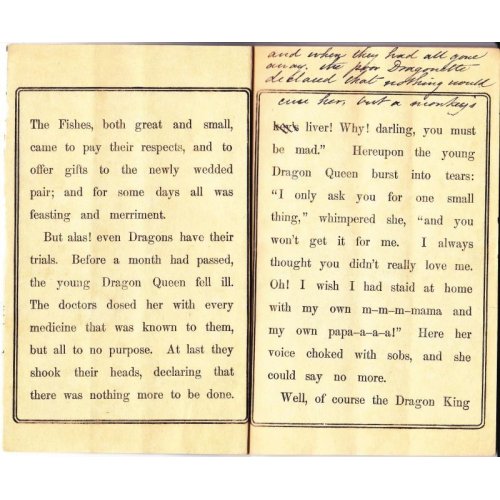 The Fishes, both great and small,
came to pay their respects, and to
offer gifts to the newly wedded
pair; and for some days all was
feasting and merriment.
But alas! even Dragons have their
trials. Before a month had passed,
the young Dragon Queen fell ill.
The doctors dosed her with every
medicine that was known to them,
but all to no purpose. At last they
shook their heads, declaring that
there was nothing more to be done.
and when they had all gone
away. the poor Dragonette
declared that nothing would
cure her, but a monkey's
liver! Why! darling, you must
be mad." Hereupon the young
Dragon Queen burst into tears:
"I only ask you for one small
thing," whimpered she, "and you
won't get it for me. I always
thought you didn't really love me.
Oh! I wish I had staid at home
with my own m–m–m–mama and
my own papa–a–a–a!" Here her
voice choked with sobs, and she
could say no more.
Well, of course the Dragon King